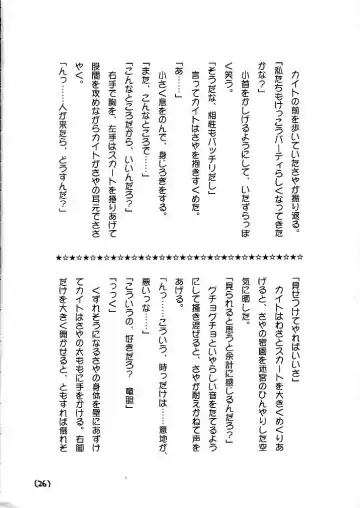 カイトの前を歩いていたさやが振り返る。
「私たちもけっこうパーティらしくなってきた
かな？」
小首をかしげるようにして、いたずらっぽ
く笑う。
「そうだな、相性もバッチリだし」
言ってカイトはさやを抱きすくめた。
「あ……」
小さく息をのんで、身じろぎをする。
「また、こんなところで……」
「こんなところだから、いいんだろ？」
右手で胸を、左手はスカートを捲りあげて
股間を攻めながらカイトがさやの耳元でささ
やく。
「んっ……人が来たら、どうすんだ？」
★☆★☆★☆★☆★☆★☆★☆★☆★☆★☆★☆★☆
「見せつけてやればいいさ」
カイトはわざとスカートを大きくめくりあ
げると、さやの密園を迷宮のひんやりした空
気に晒した。
「見られると思うと余計に感じるんだろ？」
グチョグチョといやらしい音をたてるよう
にして掻き混ぜると、さやが耐えかねて声を
あげる。
「んっ……こういう、時っだけは……意地が、
悪いっな……」
「こういうの、好きだろ？　竜胆」
「っっく」
くずれそうになるさやの身体を壁にあずけ
てカイトはさやの太ももに手をかける。右脚
だけを大きく開かせると、ともすれば倒れそ
(26)